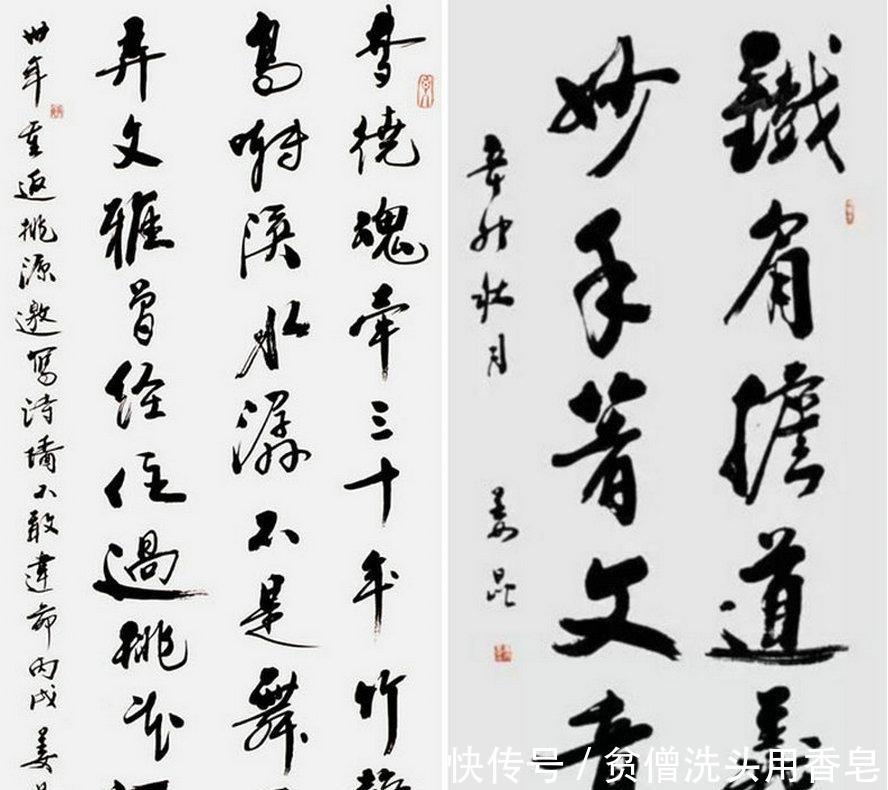 梦绕魂牵三十年竹
鸟溪水潺不是舞
弄文雅曾经住过桃花
卅年重返桃源邀写诗墙不敢違命丙戌姜
鐵肩擔道義
妙手著文章
辛卯秋月 姜昆
快传号 / 贫僧洗头用香皂